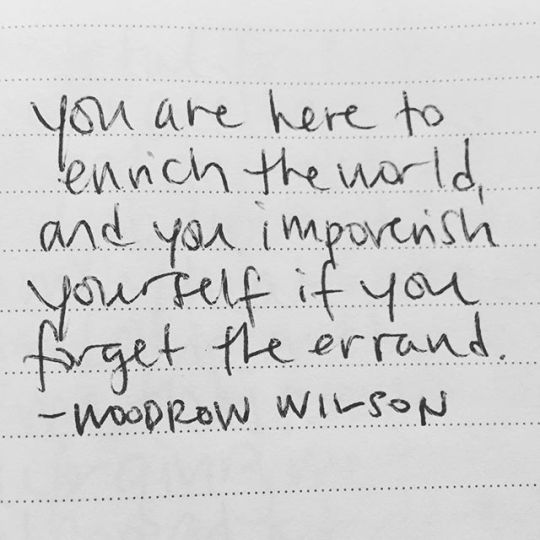 you are here to
enrich the world,
and you impoverish
yourself if you
forget the errand.
-WOODROW WILSON